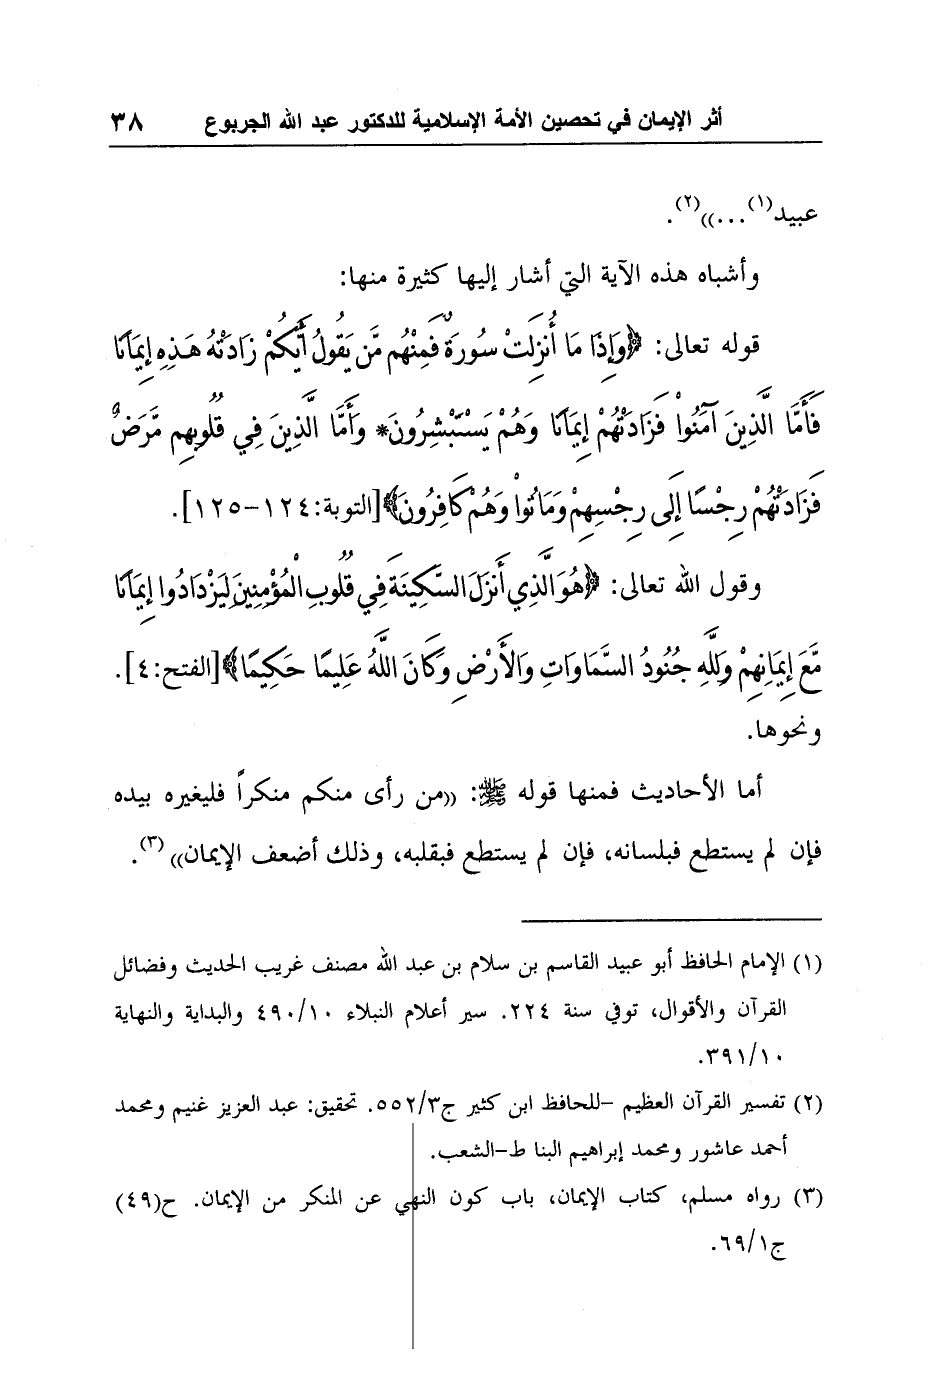 أثر الإيمان في تحصين الأمة الإسلامية للدكتور عبد الله الجربوع ٣٨
عبيد(١)...))(٢).
وأشباه هذه الآية التي أشار إليها كثيرة منها:
قوله تعالى: ﴿وَإِذَا مَا أُنزِلَتْ سُورَةٌ فَمِنْهُم مَّن يَقُولُ أَيُّكُمْ زَادَتْهُ هَـذِهِ إِيمَانًا
فَأَمَّا الَّذِينَ آمَنُواْ فَزَادَتْهُمْ إِيمَانًا وَهُمْ يَسْتَبْشِرُونَ* وَأَمَّا الَّذِينَ فِي قُلُوبِهِم مَّرَضٌ
فَزَادَتْهُمْ رِجْسًا إِلَى رِجْسِهِمْ وَمَاتُواْ وَهُمْ كَافِرُونَ﴾[التوبة:١٢٤-١٢٥].
وقول الله تعالى: ﴿هُوَ الَّذِي أَنزَلَ السَّكِينَةَ فِي قُلُوبِ الْمُؤْمِنِينَ لِيَزْدَادُوا إِيمَانًا
مَّعَ إِيمَانِهِمْ وَلِلَّهِ جُنُودُ السَّمَاوَاتِ وَالأَرْضِ وَكَانَ اللَّهُ عَلِيمًا حَكِيمًا﴾[الفتح:٤].
ونحوها.
أما الأحاديث فمنها قوله ﷺ: ((من رأى منكم منكراً فليغيره بيده
فإن لم يستطع فبلسانه، فإن لم يستطع فبقلبه، وذلك أضعف الإيمان))(٣).
(١) الإمام الحافظ أبو عبيد القاسم بن سلام بن عبد الله مصنف غريب الحديث وفضائل
القرآن والأقوال، توفي سنة ٢٢٤. سير أعلام النبلاء ٤٩٠/١٠ والبداية والنهاية
٣٩١/١٠.
(٢) تفسير القرآن العظيم -للحافظ ابن كثير ج٥٥٢/٣. تحقيق: عبد العزيز غنيم ومحمد
أحمد عاشور ومحمد إبراهيم البنا ط-الشعب.
(٣) رواه مسلم، كتاب الإيمان، باب كون النهي عن المنكر من الإيمان. ح(٤٩)
ج٦٩/١.